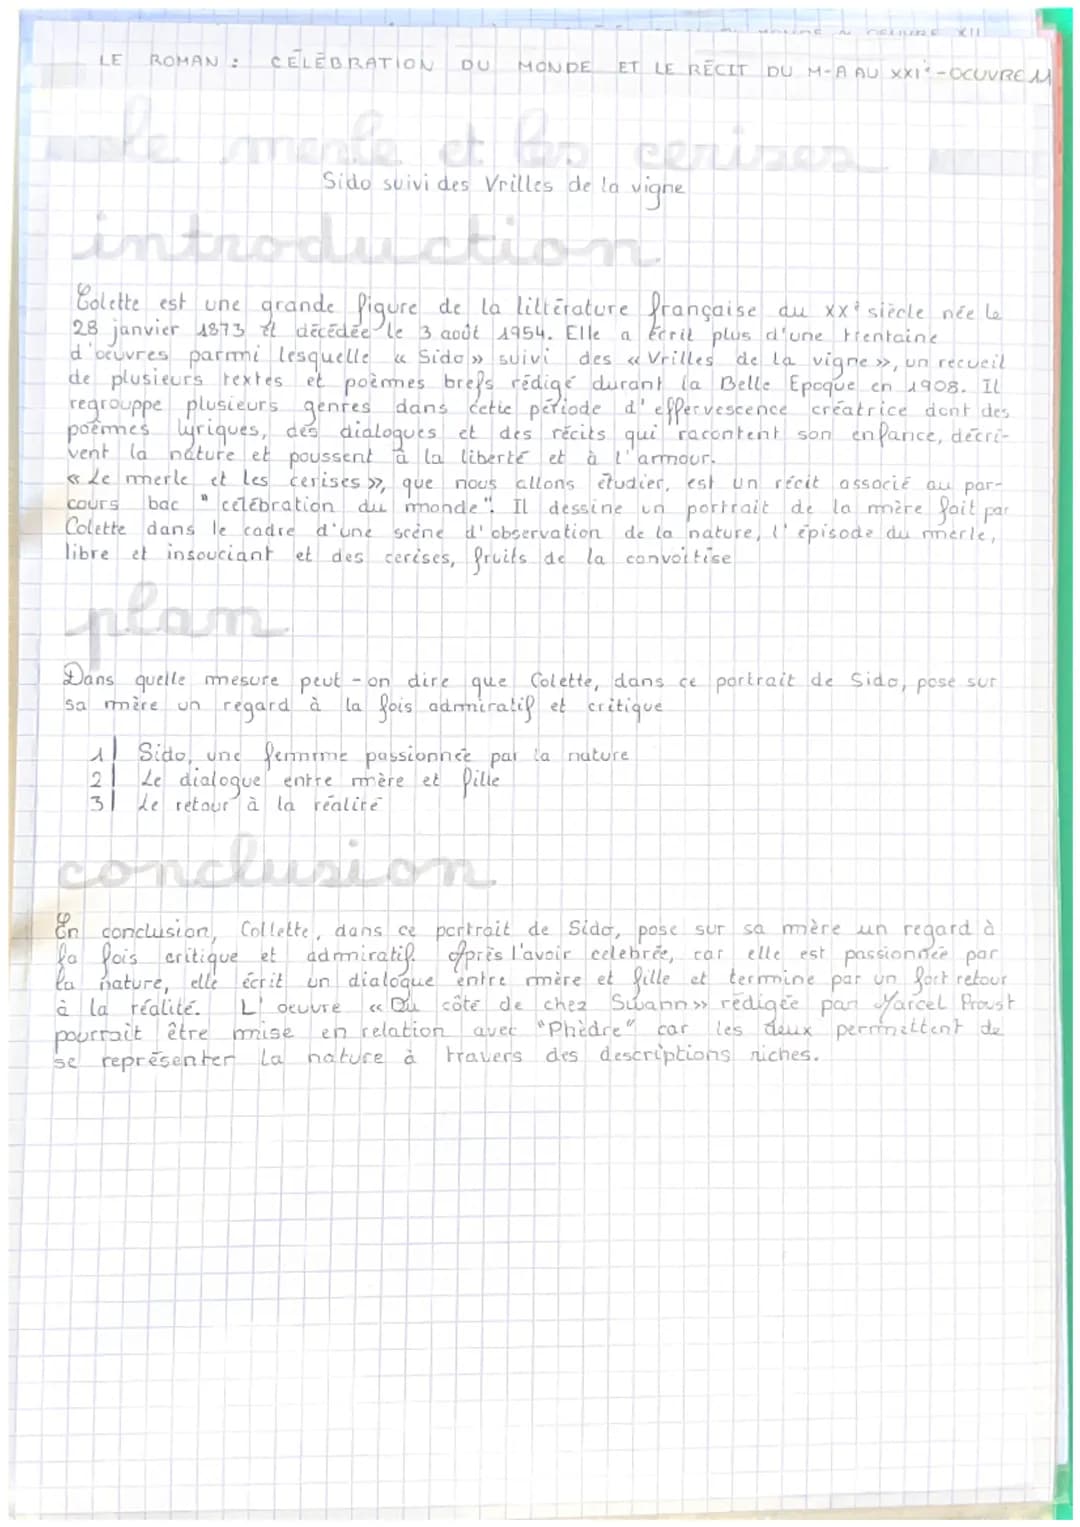 LE ROMAN : CÉLÉBRATION DU MONDE ET LE RÉCIT DU M-A AU XXIe - OEUVRE 11
le merle et les cerises
Sido suivi des Vrilles de la vigne
introduction
Colette est une grande figure de la littérature française du XXe siècle née le
28 janvier 1873 et décédée le 3 août 1954. Elle a écrit plus d'une trentaine
d'oeuvres parmi lesquelle « Sido » suivi des « Vrilles de la vigne », un recueil
de plusieurs textes et poèmes brefs rédigé durant la Belle Epoque en 1908. Il
regrouppe plusieurs genres dans cette période d'effervescence créatrice dont des
poèmes lyriques, des dialogues et des récits qui racontent son enfance, décri-
vent la nature et poussent à la liberté et à l'amour.
« Le merle et les cerises », que nous allons étudier, est un récit associé au par-
cours bac "célébration du monde". Il dessine un portrait de la mère fait par
Colette dans le cadre d'une scène d'observation de la nature, l'épisode du merle,
libre et insouciant et des cerises, fruits de la convoitise
plan
Dans quelle mesure peut-on dire que Colette, dans ce portrait de Sido, pose sur
sa mère un regard à la fois admiratif et critique
1| Sido, une femme passionnée par la nature
2| Le dialogue entre mère et fille
3| Le retour à la réalité
conclusion
En conclusion, Collette, dans ce portrait de Sido, pose sur sa mère un regard à
la fois critique et admiratif. Après l'avoir celebrée, car elle est passionnée par
la nature, elle écrit un dialogue entre mère et fille et termine par un fort retour
à la réalité. L'oeuvre « Du côté de chez Swann » rédigée par Marcel Proust
pourrait être mise en relation avec "Phèdre" car les deux permettent de
se représenter la nature à travers des descriptions riches.